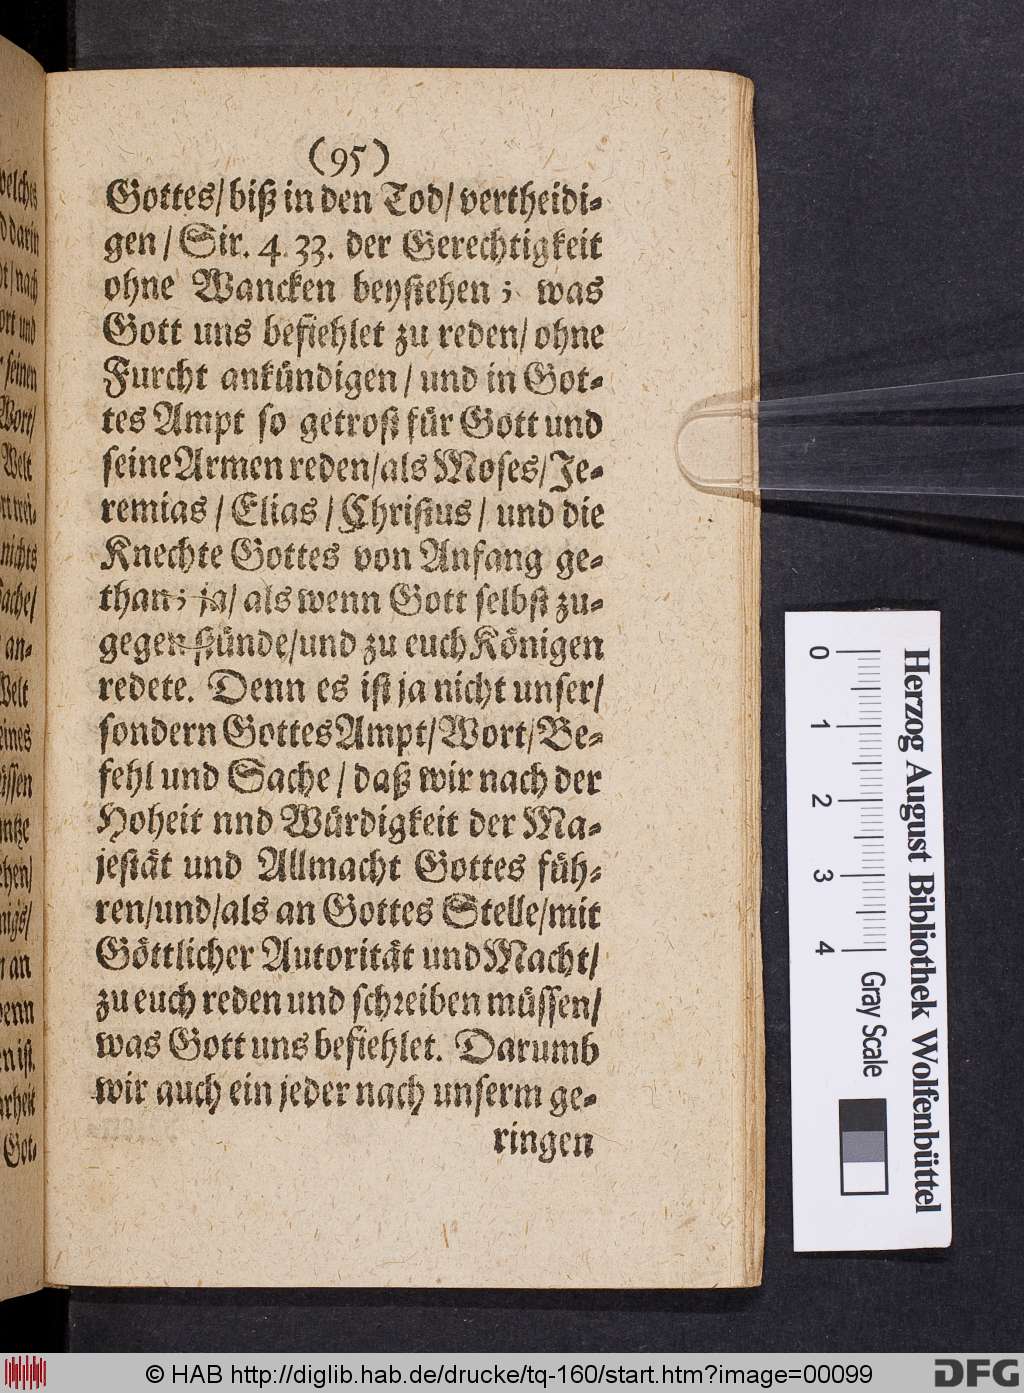 (95)
Gottes/ biß in den Tod/ vertheidi-
gen/ Sir. 4. 33. der Gerechtigkeit
ohne Wancken beystehen; was
Gott uns befiehlet zu reden/ ohne
Furcht ankündigen/ und in Got-
tes Ampt so getrost für Gott und
seine Armen reden/ als Moses/ Je-
remias/ Elias/ Christus/ und die
Knechte Gottes von Anfang ge-
than; ja/ als wenn Gott selbst zu-
gegen stünde/ und zu euch Königen
redete. Denn es ist ja nicht unser/
sondern Gottes Ampt/ Wort/ Be-
fehl und Sache/ daß wir nach der
Hoheit nnd Würdigkeit der Ma-
jestät und Allmacht Gottes füh-
ren/ und/ als an Gottes Stelle/ mit
Göttlicher Autorität und Macht/
zu euch reden und schreiben müssen/
was Gott uns befiehlet. Darumb
wir auch ein jeder nach unserm ge-
ringen
welches
darin
nach
und
seinen
Wort/
Welt
nichts
an-
Welt
eines
an
Got-
0 1 2 3 4
Herzog August Bibliothek Wolfenbüttel
Gray Scale
© HAB http://diglib.hab.de/drucke/tq-160/start.htm?image=00099
DFG